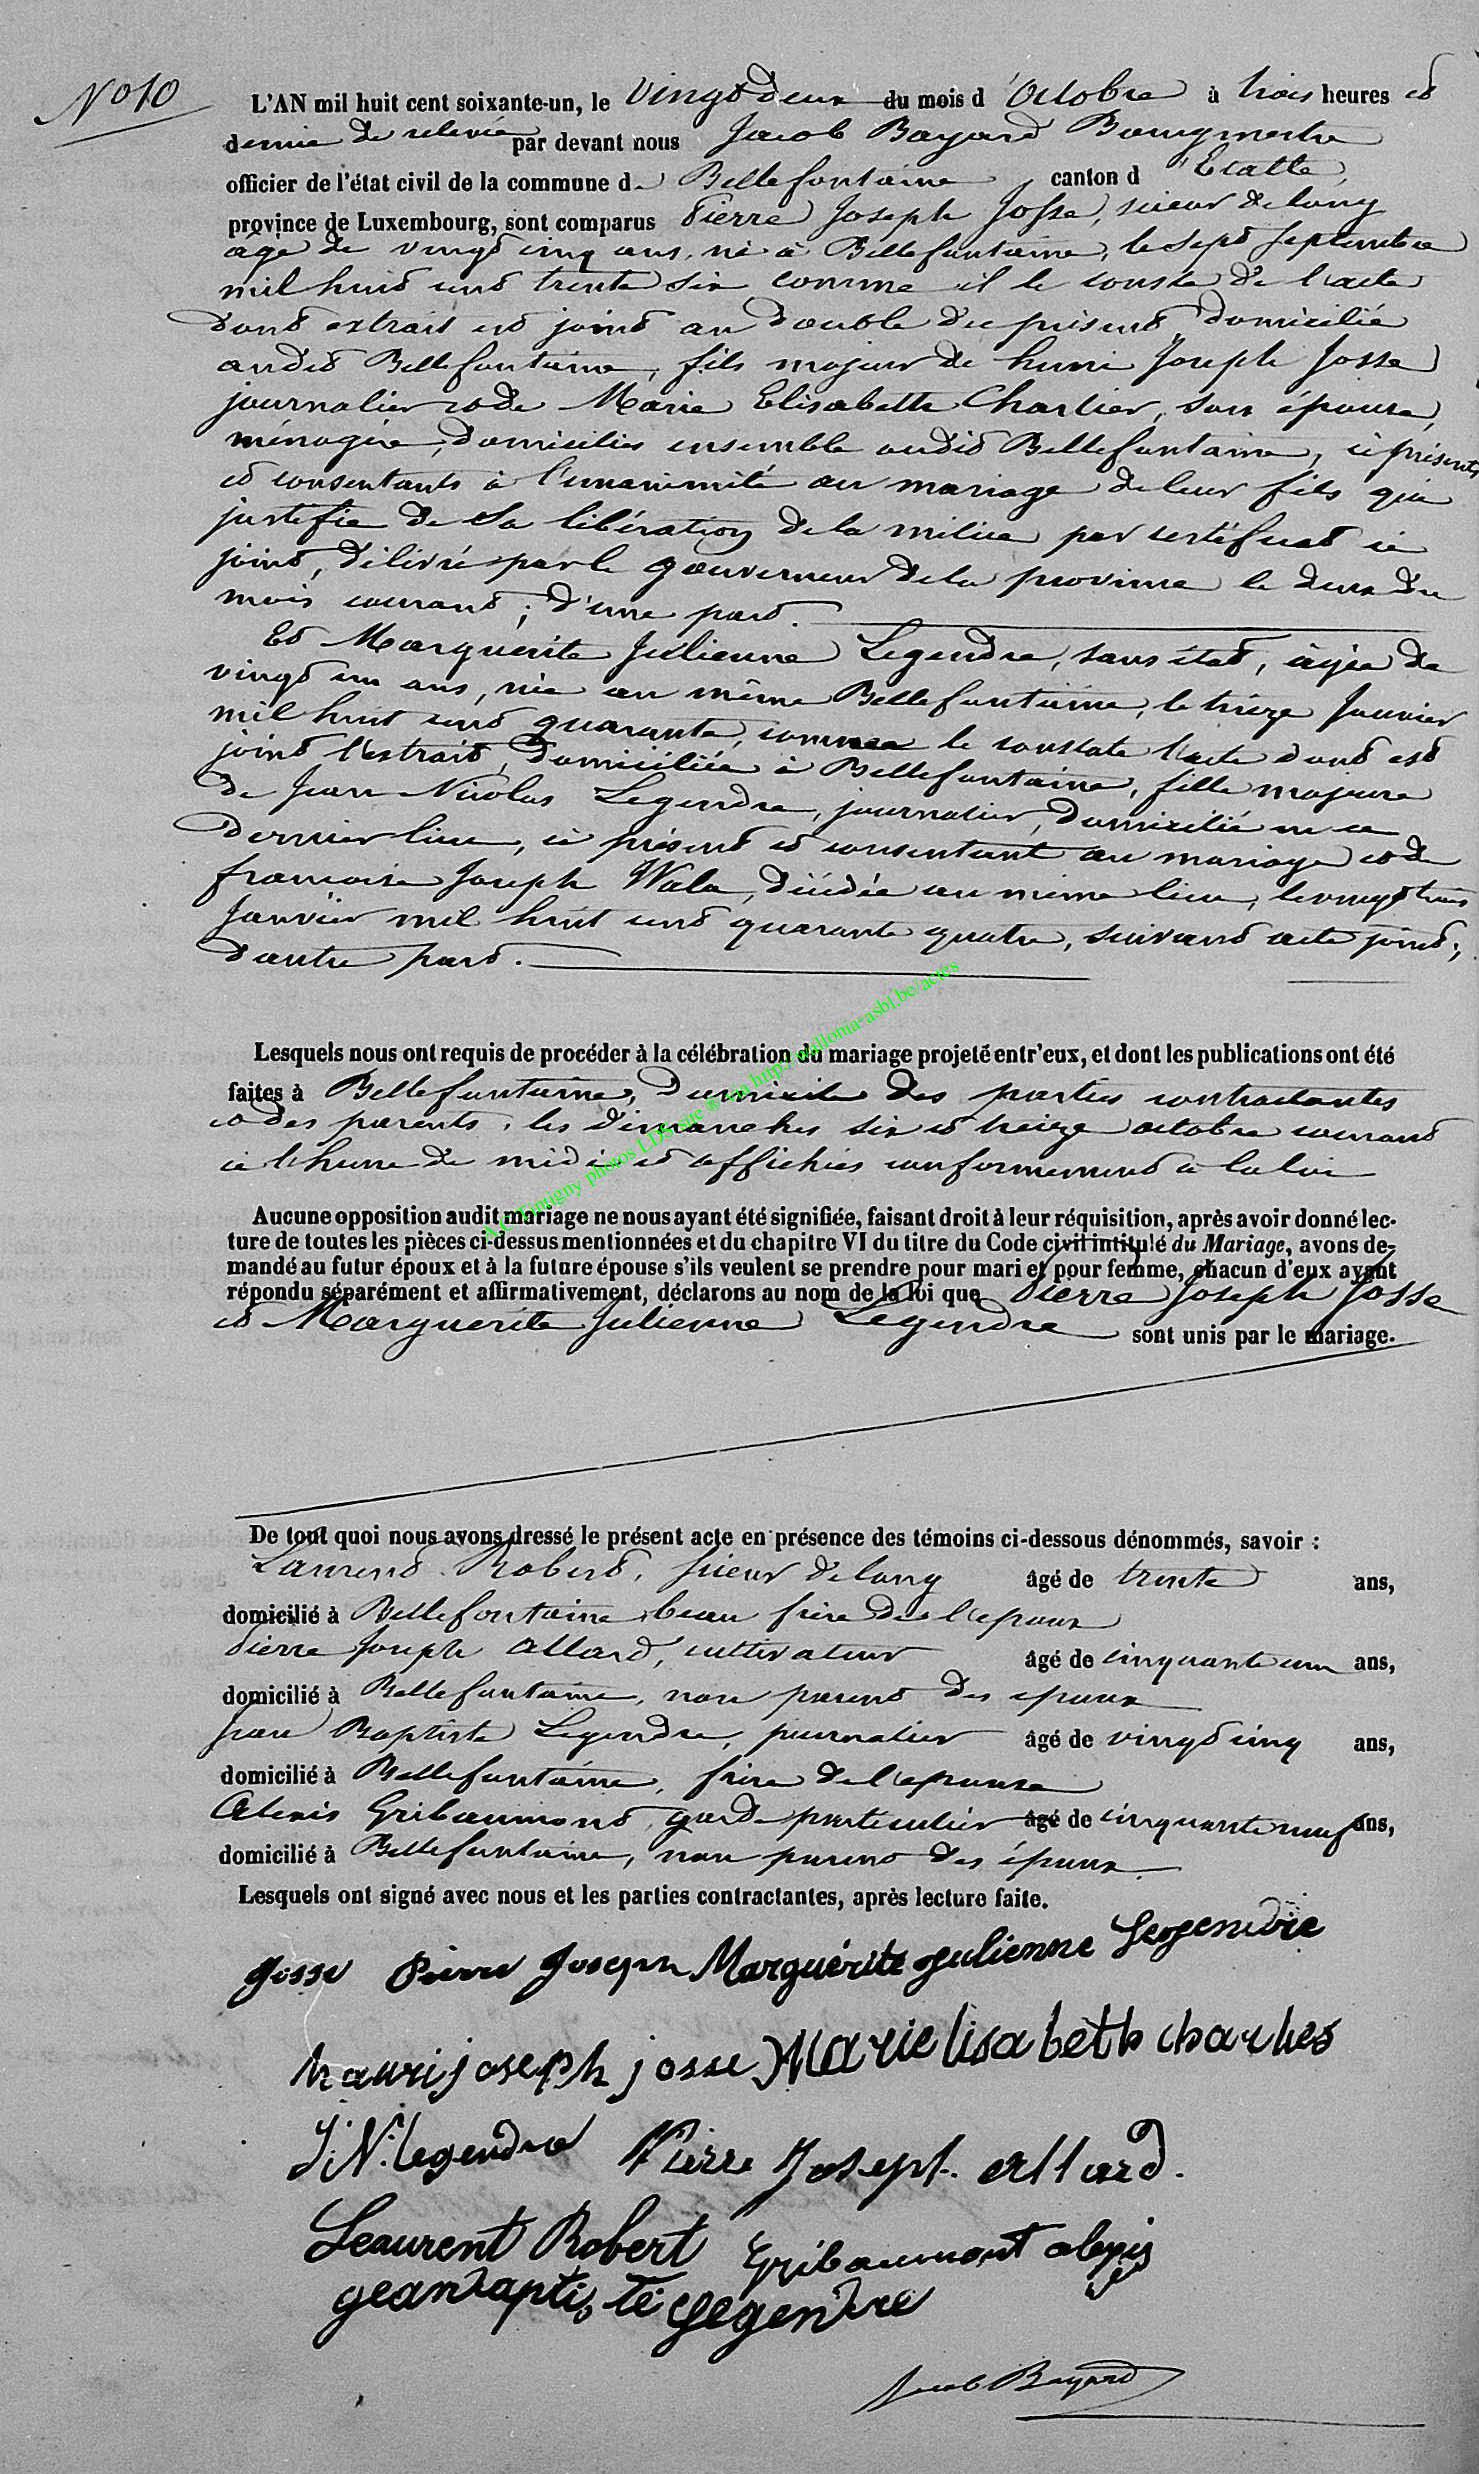 N° 10
L'AN mil huit cent soixante-un, le vingt deux du mois d'Octobre à trois heures et
demie de relevée par devant nous Jacob Bayard Bourgmestre
officier de l'état civil de la commune de Bellefontaine, canton d'Etalle,
province de Luxembourg, sont comparus Pierre Joseph Josse, scieur de long
âgé de vingt cinq ans, né à Bellefontaine, le sept septembre
mil huit cent trente six comme il le conste de l'acte
dont extrait est joint au double du présent, domicilié
audit Bellefontaine, fils majeur de henri Joseph Josse
journalier et de Marie Elisabeth Charlier, son épouse,
ménagère, domiciliés ensemble audit Bellefontaine, ci présents
et consentants à l'unanimité au mariage de leur fils qui
justifie de sa libération de la milice par certificat ci
joint, délivré par le gouverneur de la province le deux du
mois courant; d'une part.
Et Marguerite Julienne Legendre, sans état, âgée de
vingt un ans, née au même Bellefontaine, le treize Janvier
mil huit cent quarante, comme le constate l'acte dont est
joint l'extrait, domiciliée à Bellefontaine, fille majeure
de Jean Nicolas Legendre, journalier, domicilié en ce
dernier lieu, ci présent et consentant au mariage et de
francoise Joseph Wala, décédée au même lieu, le vingt trois
Janvier mil huit cent quarante quatre, suivant acte joint;
d'autre part.
Lesquels nous ont requis de procéder à la célébration du mariage projeté entr'eux, et dont les publications ont été
faites à Bellefontaine, domicile des parties contractantes
et des parents, les dimanches six et treize octobre courant
à l'heure de midi et affichées conformément à la loi
A.C. Tintigny photos LDS site © via http://wallonia-asbl.be/actes
Aucune opposition audit mariage ne nous ayant été signifiée, faisant droit à leur réquisition, après avoir donné lec-
ture de toutes les pièces ci-dessus mentionnées et du chapitre VI du titre du Code civil intitulé du Mariage, avons de-
mandé au futur époux et à la future épouse s'ils veulent se prendre pour mari et pour femme, chacun d'eux ayant
répondu séparément et affirmativement, déclarons au nom de la loi que Pierre Joseph Josse
et Marguerite Julienne Legendre sont unis par le mariage.
De tout quoi nous avons dressé le présent acte en présence des témoins ci-dessous dénommés, savoir :
Laurent Robert, scieur de long âgé de trente ans,
domicilié à Bellefontaine beau frère de l'epoux
Pierre Joseph Allard, cultivateur âgé de cinquante un ans,
domicilié à Bellefontaine, non parent des epoux
Jean Baptiste Legendre, journalier âgé de vingt cinq ans,
domicilié à Bellefontaine, frère de l'epouse
Alexis Gribaumont, garde particulier âgé de cinquante neuf ans,
domicilié à Bellefontaine, non parent des époux
Lesquels ont signé avec nous et les parties contractantes, après lecture faite.
josse Pierre Joseph Marguérite Julienne Legendre
haurijoseph josse Marie lisabeth charlies
J. N. legendre Pierre Joseph allard.
Leaurent Robert Gribaumont alexis
geanbaptiste Legendre
Jacob Bayard